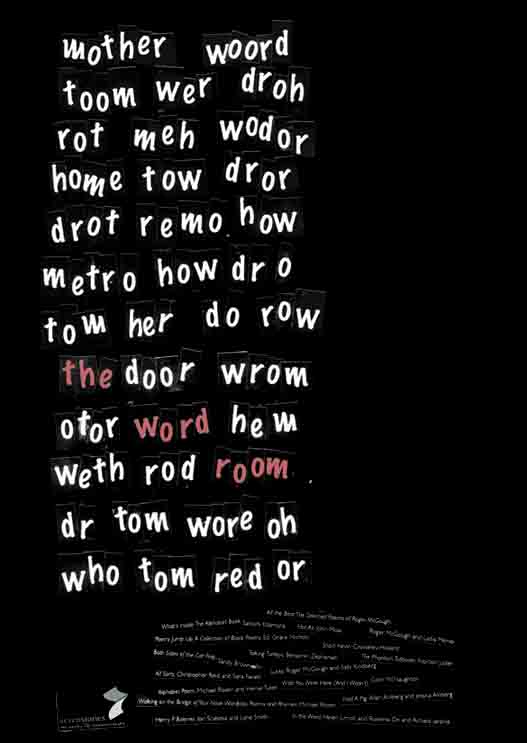 mother woord
toom wer droh
rot meh wodor
home tow dror
drot remo how
metro how dr o
tom her do row
the door wrom
otor word hem
weth rod room
dr tom wore oh
who tom red or
All the Best The Selected Poems of Roger McGough
What's Inside The Alphabet Book Satoshi Kitamura
Not As John Mole
Roger McGough and Lydia Monks
Poetry Jump Up A Collection of Black Poetry Ed. Grace Nichols
Both Sides of the
Talking Turkeys Benjamin Zephaniah
The Phantom Tollbooth Norton Juster
Sandy Brownjohn
Lucky Roger McGough and Sally Kindberg
All Sorts Christopher Reid and Sara Fanelli
Wish You Were Here (And I Wasn't) Colin McNaughton
Alphabet Poem Michael Rosen and Herve Tullet
Had A Pig Allan Ahlberg and Jessica Ahlberg
Walking on the Bridge of Your Nose Wordplay Poems and Rhymes Michael Rosen
seven stories